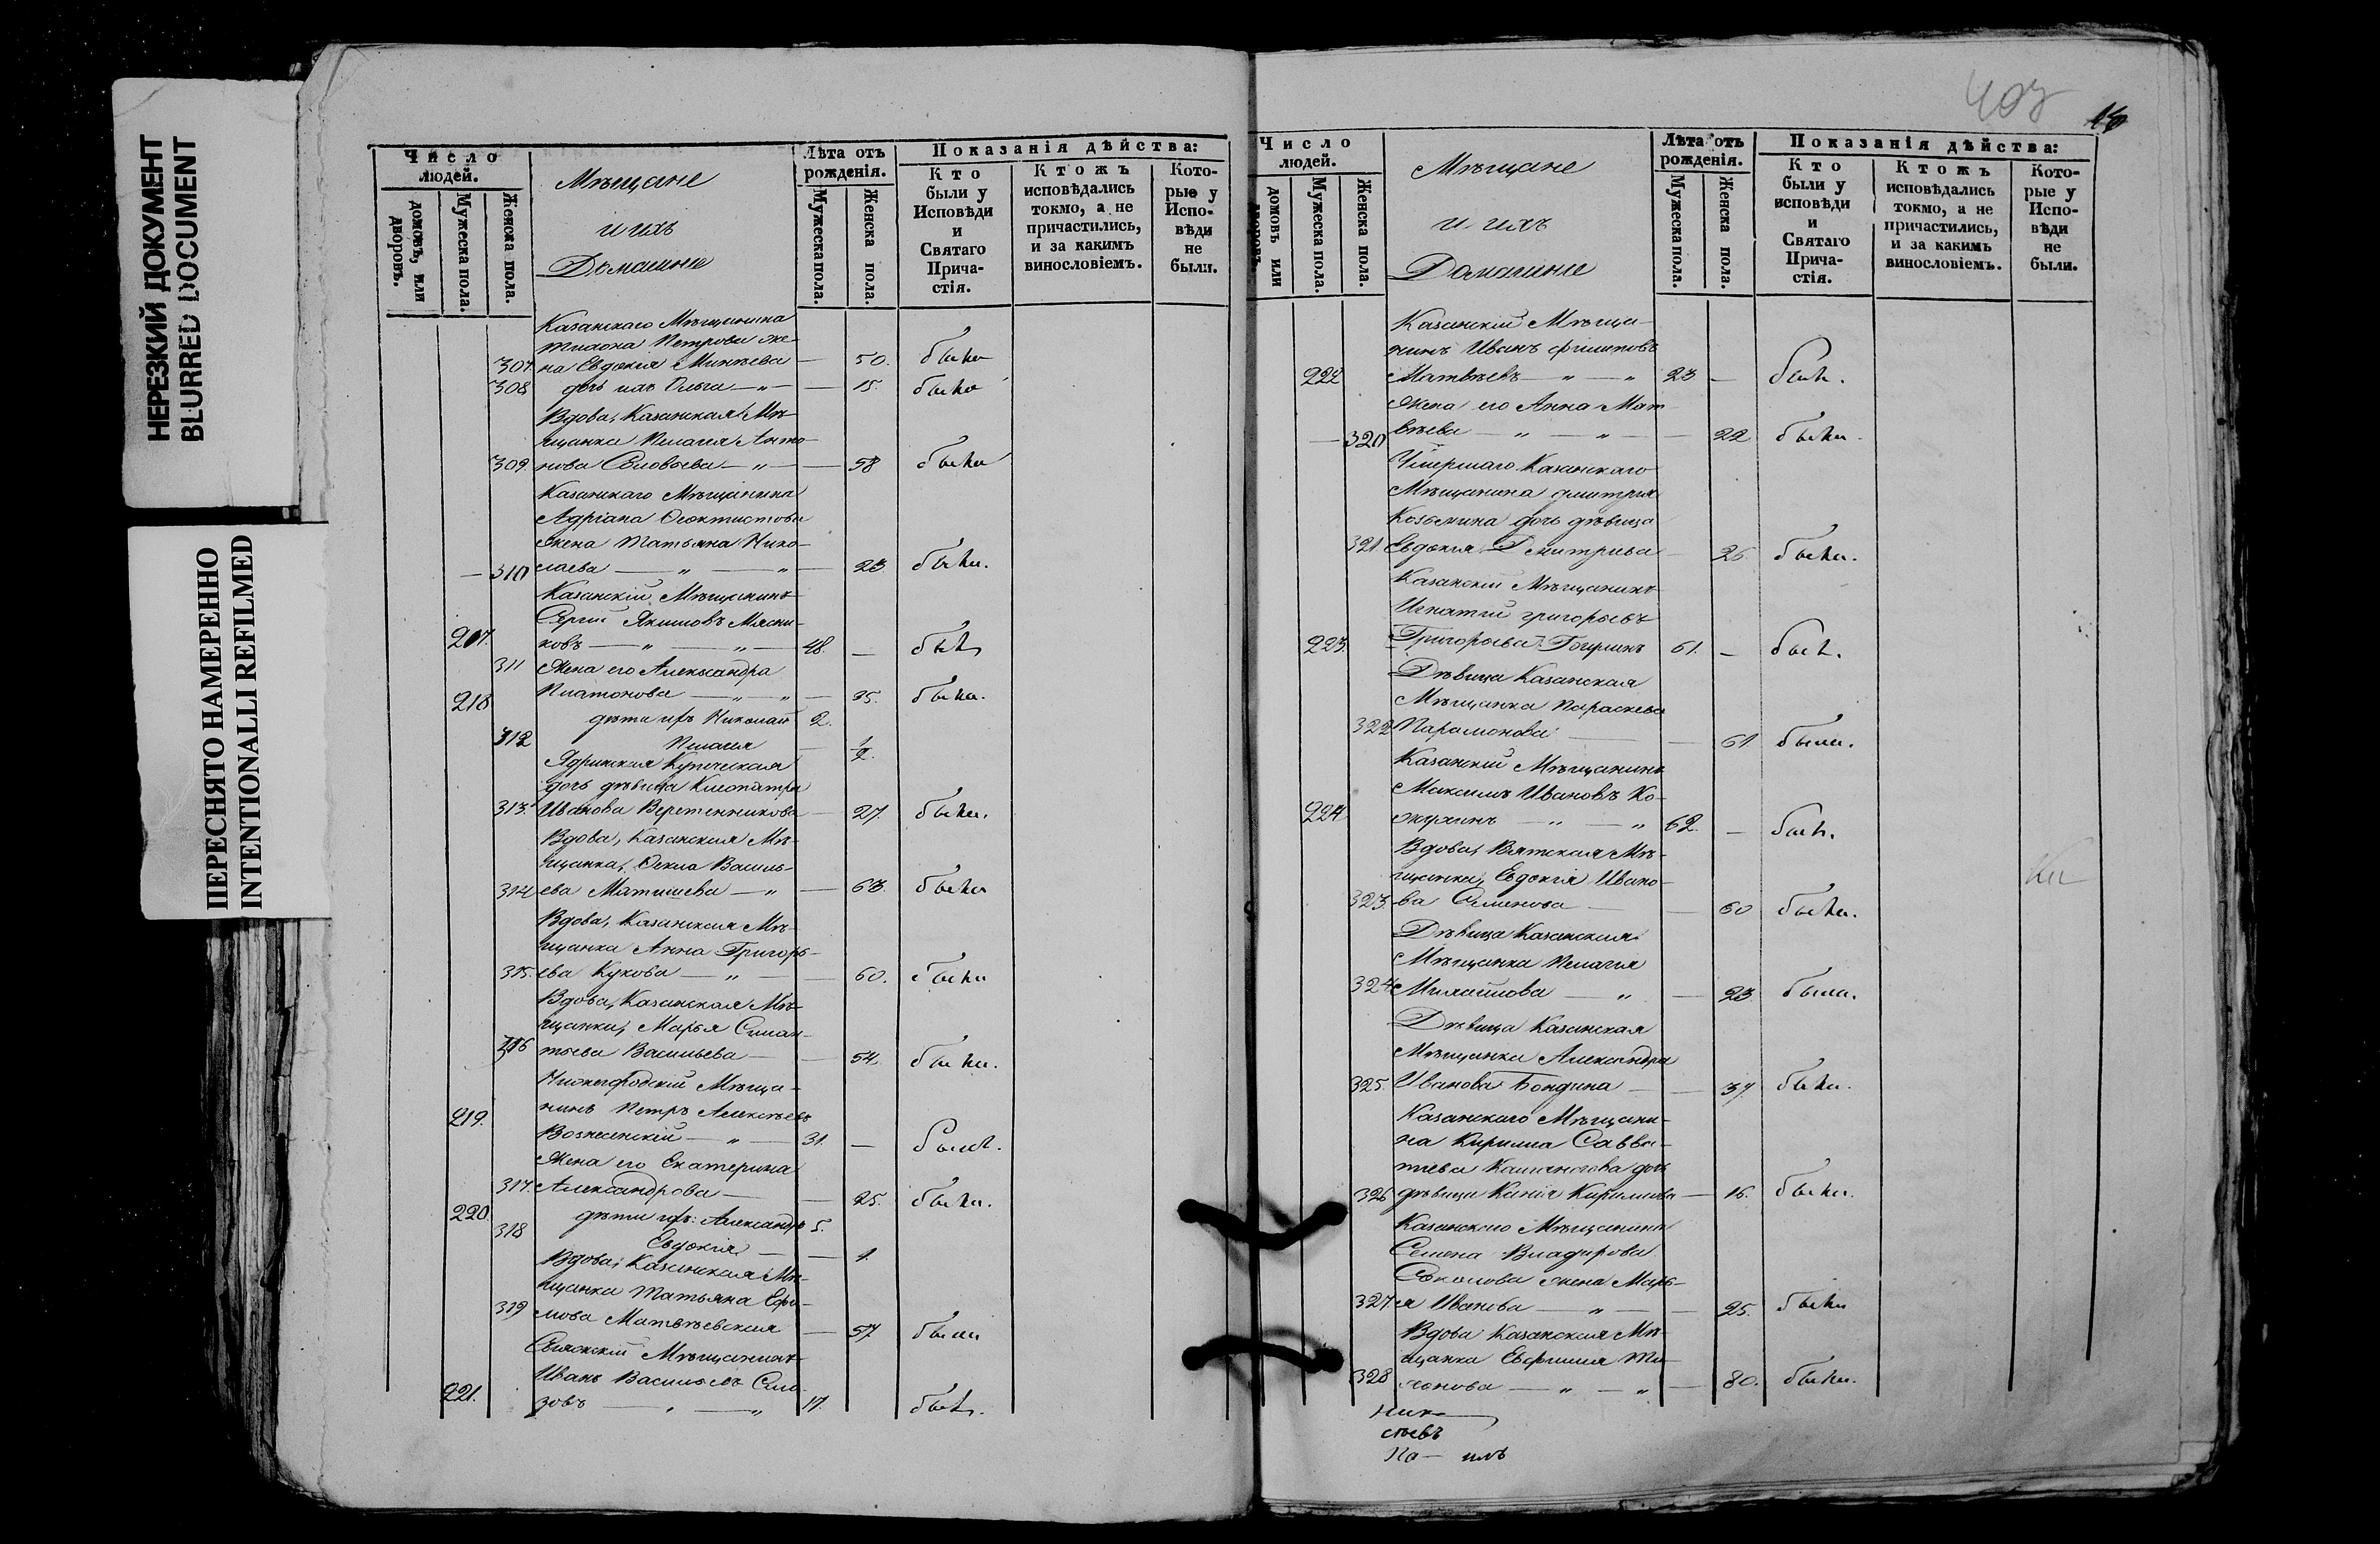 НЕРЕЗКИЙ ДОКУМЕНТ
BLURRED DOCUMENT
ПЕРЕСНЯТО НАМЕРЕННО
INTENTIONALLI REFILMED
Число людей.
домовъ, или дворовъ.
Мужеска пола.
Женска пола.
Мѣщане
и ихъ
Домашніе
Лѣта отъ рожденія.
Мужеска пола.
Женска пола.
Показанія дѣйства:
Кто были у Исповѣди и Святаго Прича-стія.
Ктожъ исповѣдались токмо, а не причастились, и за какимъ винословіемъ.
Кото-рые у Испо-вѣди не были.
Казанскаго Мѣщанина
Тихона Петрова же-
307. на Евдокія Минѣева — 50. была
308 дочь ихъ Ольга — „ — 15. была
Вдова, Казанская Мѣ-
щанка Пелагия Анто-
309. нова Соловьева — „ — 58 была
Казанскаго Мѣщанина
Адріана Ѳеоктистова
жена Татьяна Нико-
— 310 лаева — „ — „ — 23. была.
Казанскій Мѣщанинъ
Сергій Якимовъ Мясни-
217. ковъ — „ — „ — 48. — былъ
311 Жена его Александра
Платонова — „ — „ — 35. была.
218 дѣти ихъ Николай 2.
312 Пелагея — 1/2.
Ядринская Купеческая
дочь дѣвица Клеопатра
313. Иванова Веретенникова — 27. была.
Вдова, Казанская Мѣ-
щанка, Ѳекла Василь-
314 ева Матишева — „ — 63. была
Вдова, Казанская Мѣ-
щанка Анна Григорь-
315. ева Кукова — „ — 60. была
Вдова, Казанская Мѣ-
щанка, Марья
316 тьева Васильева — 54. была.
Нижегородскій Мѣща-
219. нинъ Петръ Алексѣевъ
Вознесенскій — „ — 31. — былъ.
Жена его Екатерина
317. Александрова — 25. была.
220. дѣти ихъ: Александръ 5.
318 Евдокія — 4.
Вдова, Казанская Мѣ-
щанка Татьяна Ефи-
319 мова Матвѣевская — 57 была
Свіяжскій Мѣщанинъ
Иванъ Васильевъ
221. зовъ — „ — „ 17. былъ.
407
Число людей.
домовъ или дворовъ.
Мужеска пола.
Женска пола.
Мѣщане
и ихъ
Домашніе
Лѣта отъ рожденія.
Мужеска пола.
Женска пола.
Показанія дѣйства:
Кто были у исповѣди и Святаго Прича-стія.
Ктожъ исповѣдались токмо, а не причастились, и за какимъ винословіемъ.
Кото-рые у Испо-вѣди не были.
Казанскій Мѣща-
нинъ Иванъ Филиповъ
222 Матвѣевъ — „ — „ 23 — былъ.
Жена его Анна Мат-
— 320 вѣева — „ — „ — 22 была
Умершаго Казанскаго
Мѣщанина Дмитрія
Козьмина дочь дѣвица
321. Евдокія Дмитріева — 26. была.
Казанскій Мѣщанинъ
Игнатій Григорьевъ
223. Григорьева 61. — былъ.
Дѣвица Казанская
Мѣщанка Параскева
322 Парамонова — 61 была.
Казанскій Мѣщанинъ
Максимъ Ивановъ Ко-
224 жухинъ — „ — „ 62. — былъ.
Вдова, Вятская Мѣ-
щанка, Евдокія Ивано-
323. ва Семенова — 60 была.
Дѣвица Казанская
Мѣщанка Пелагея
324 Михайлова — „ — 23 была.
Дѣвица Казанская
Мѣщанка Александра
325. Иванова Бондина — 37 была.
Казанскаго Мѣщани-
на Кирилла Савва-
тіева дочь
326 дѣвица Кирилова — 16. была.
Казанскаго Мѣщанина
Семена
Соколова жена Марь-
327 я Иванова — „ — 25. была
Вдова Казанская Мѣ-
щанка Евфимия Ти-
328 хонова — „ — „ — 80. была.